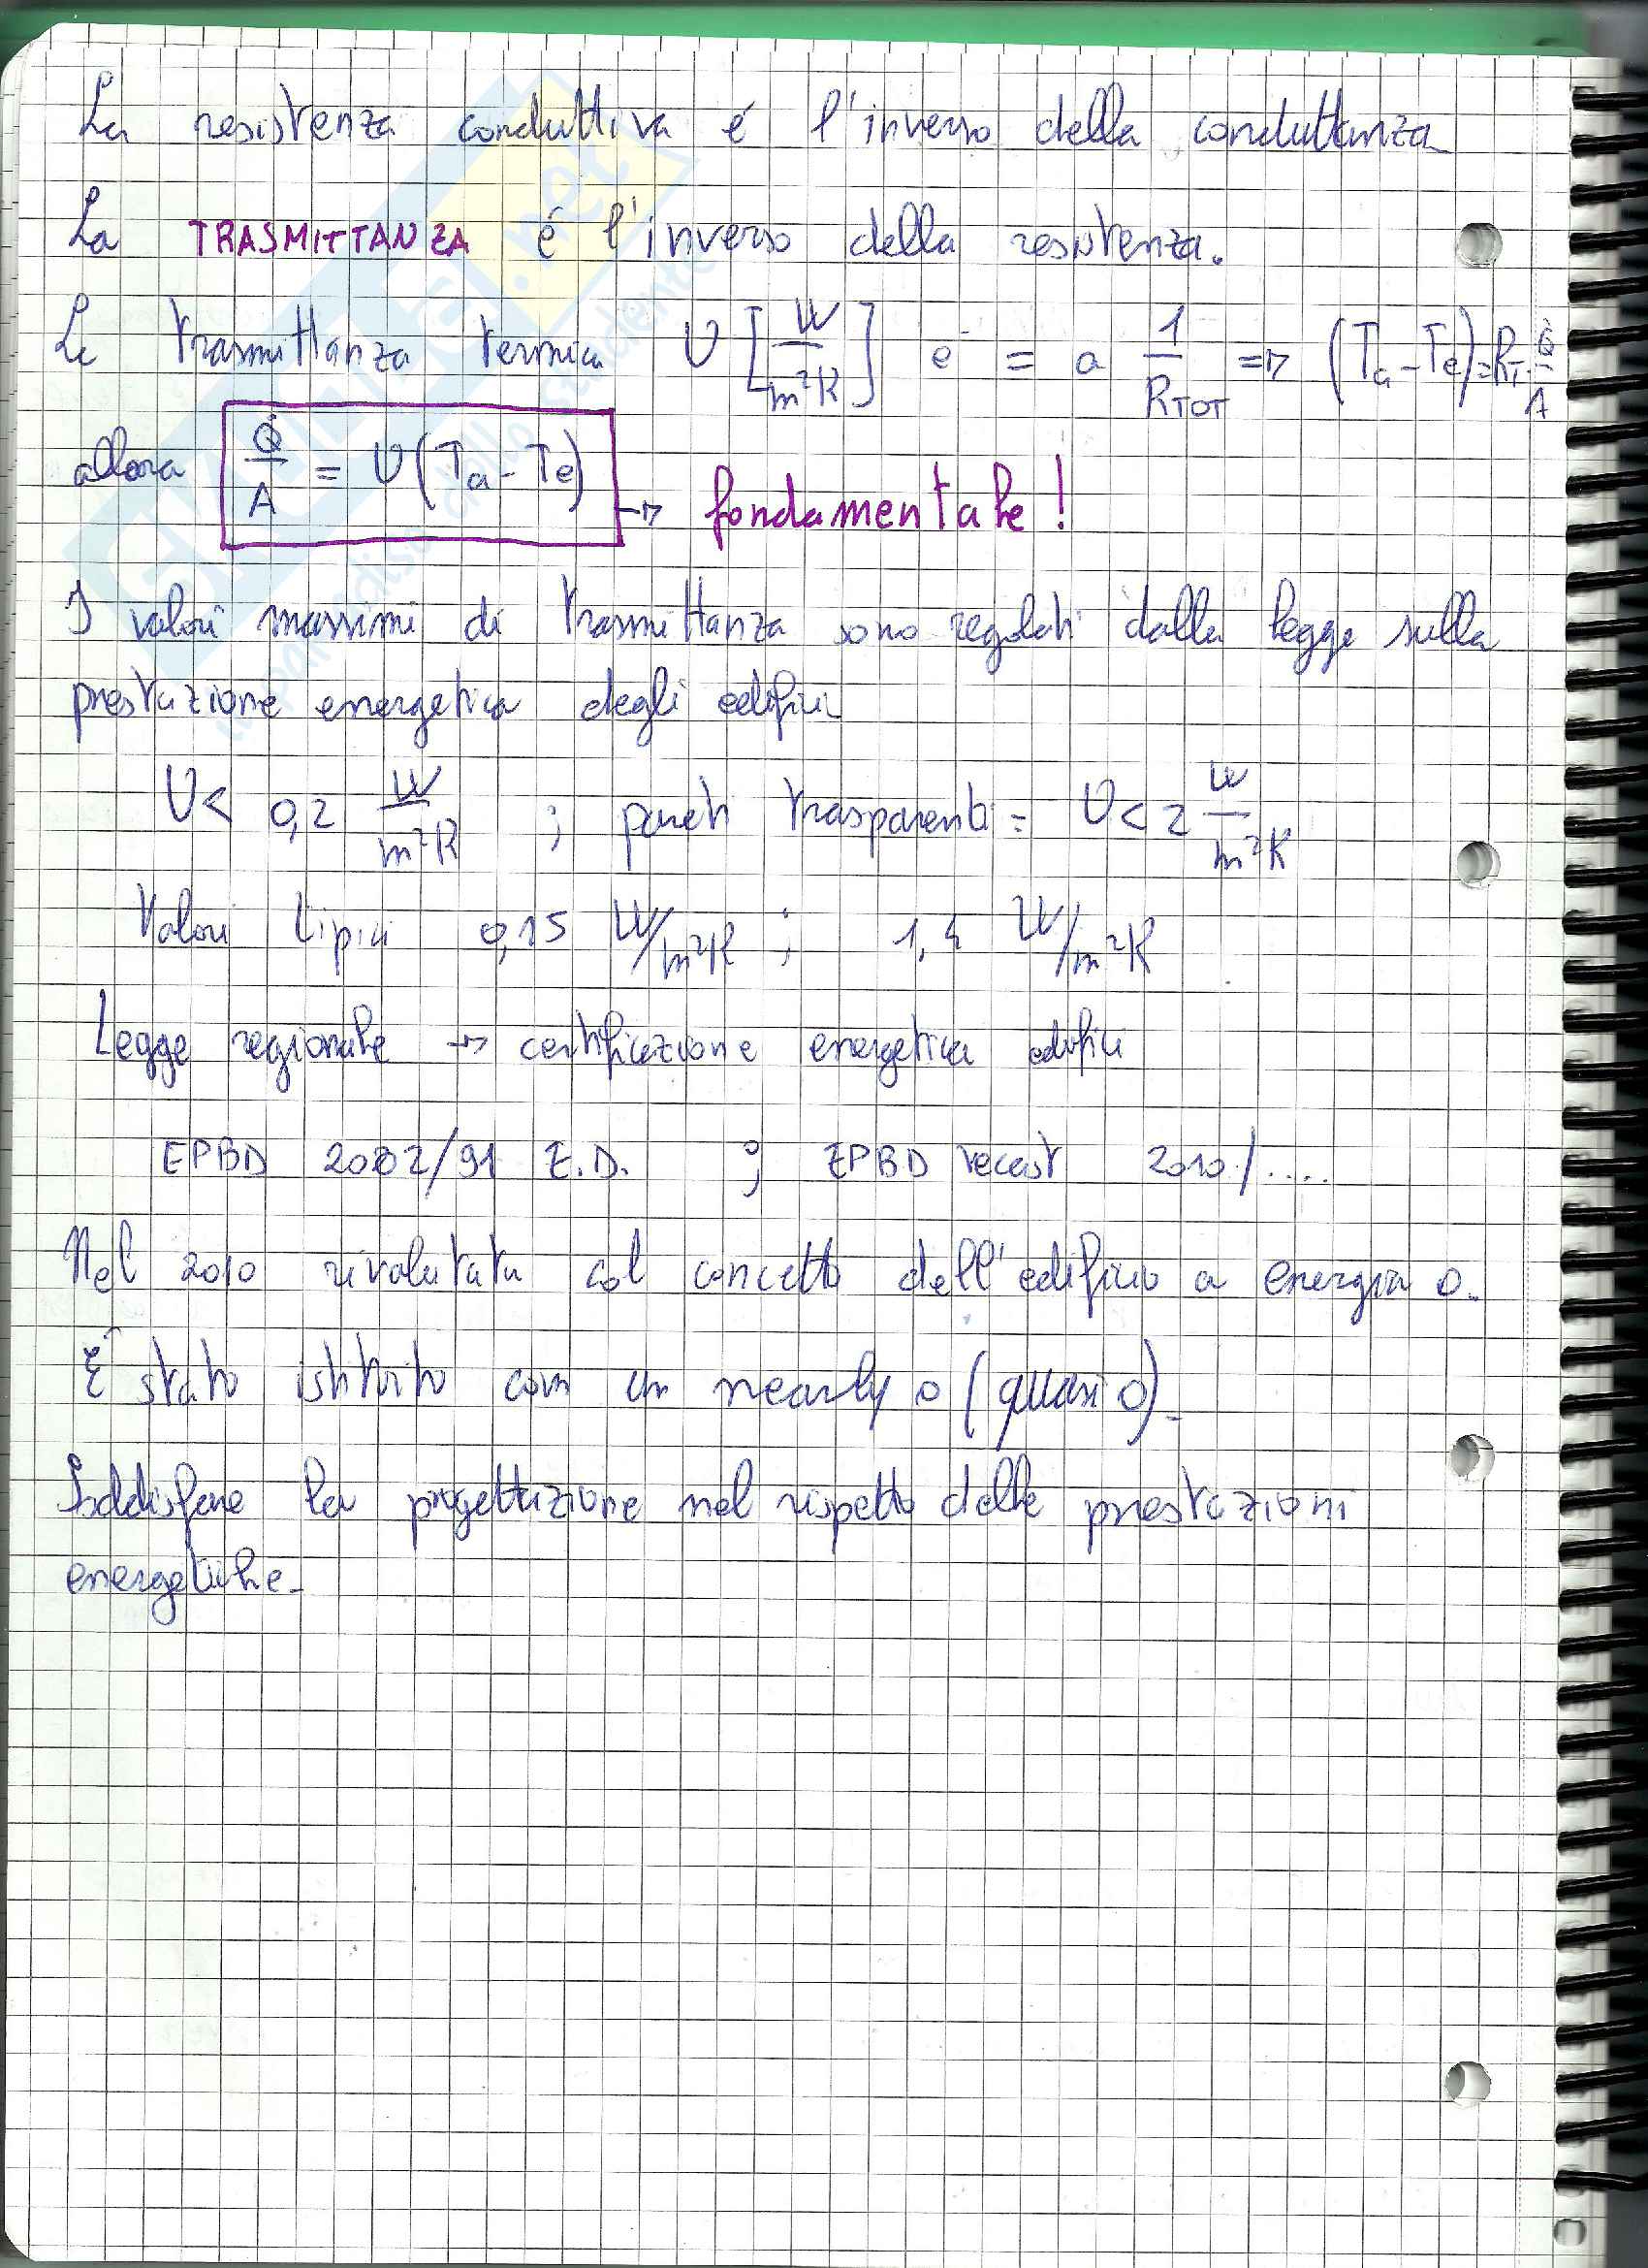 La resistenza conduttiva é l'inverso della conduttanza
La TRASMITTANZA é l'inverso della resistenza.
La trasmittanza termica U [W/m²K] e = a 1/R_TOT => (Ta - Te) = R_T · Q̇/A
allora Q̇/A = U (Ta - Te) → fondamentale!
I valori massimi di trasmittanza sono regolati dalla legge sulla
prestazione energetica degli edifici
U < 0,2 W/m²K ; pareti trasparenti = U < 2 W/m²K
Valori tipici 0,15 W/m²K ; 1,4 W/m²K
Legge regionale → certificazione energetica edifici
EPBD 2002/91 E.D. ; EPBD recast 2010/....
Nel 2010 rivalutata col concetto dell'edificio a energia 0.
É stato istituito con un nearly 0 (quasi 0).
Soddisfare la progettazione nel rispetto delle prestazioni
energetiche.
.net